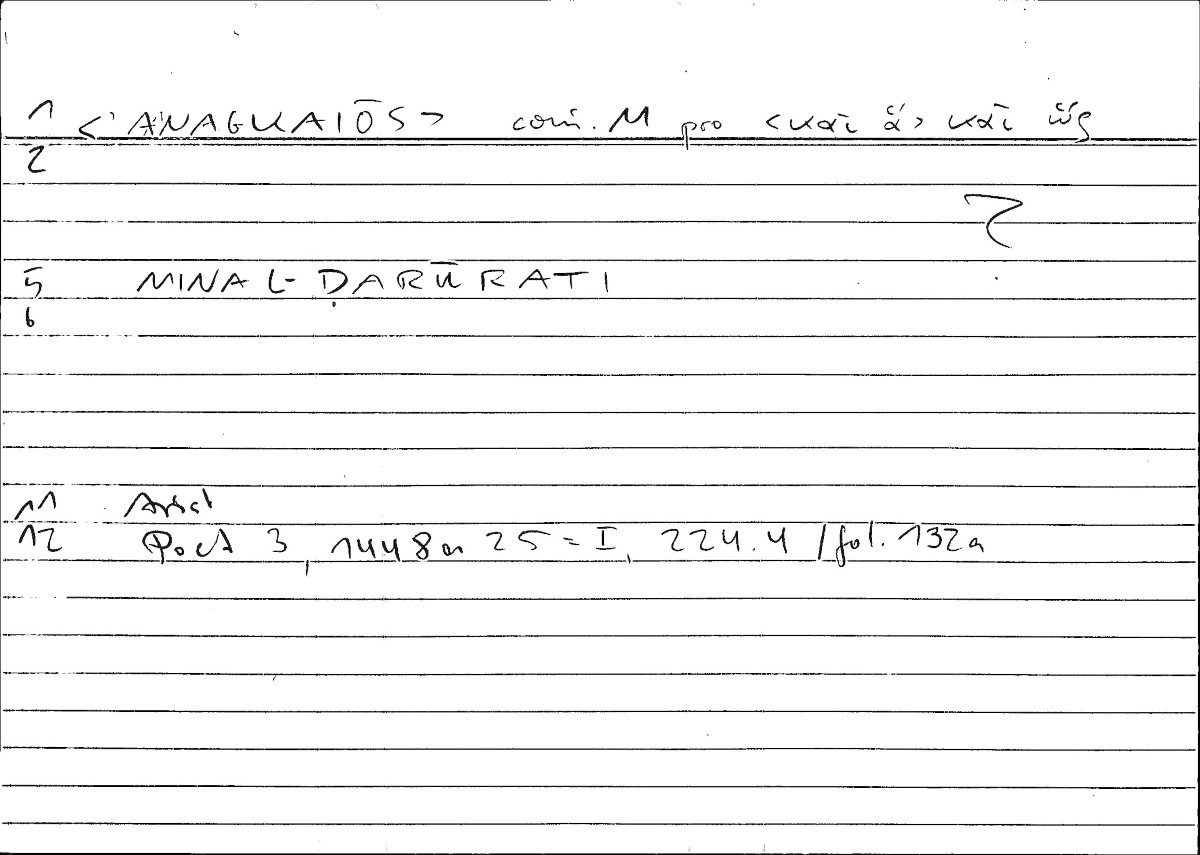 1 <'ANAGKAIŌS> coni. M pro <καὶ ἃ> καὶ ὡς
2
?
5 MINA L-ḌARŪRATI
6
11 Arist
12 Poet 3, 1448a 25 = I, 224.4 / fol. 132a